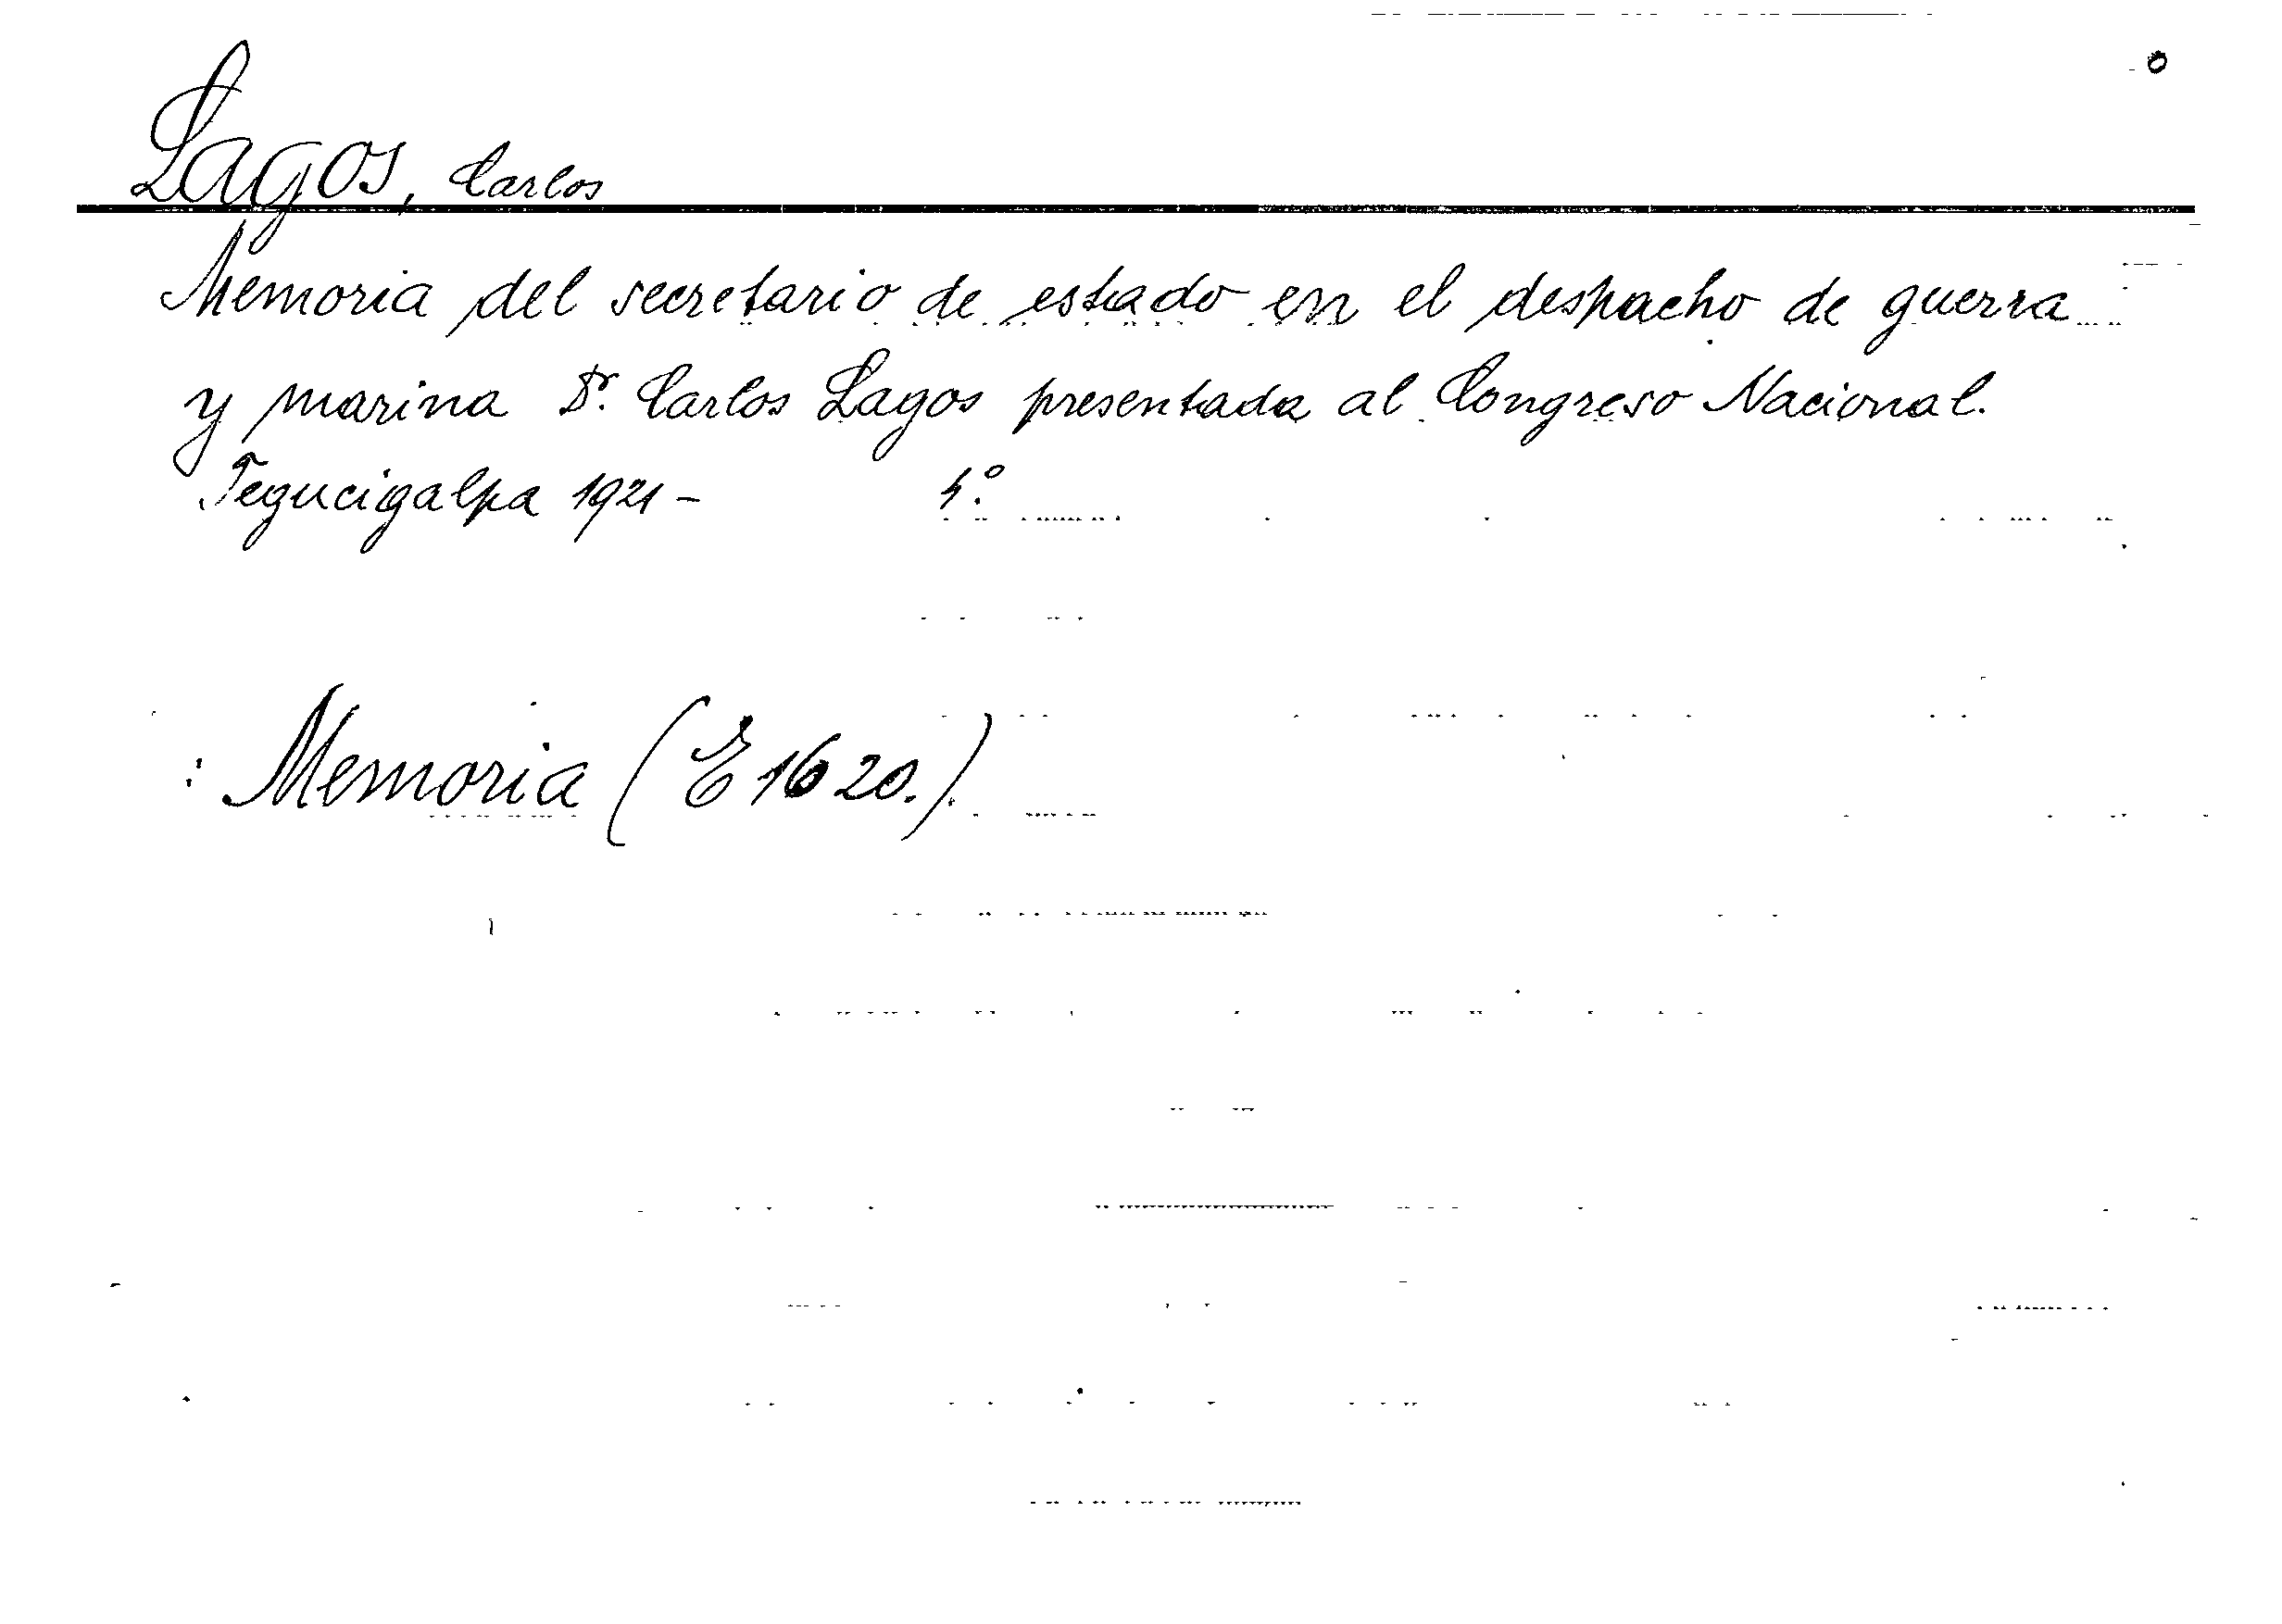 Lagos, Carlos
Memoria del secretario de estado en el despacho de guerra
y marina Dr. Carlos Lagos presentada al Congreso Nacional.
Tegucigalpa 1921 - 4º.
: Memoria (E 1620.)